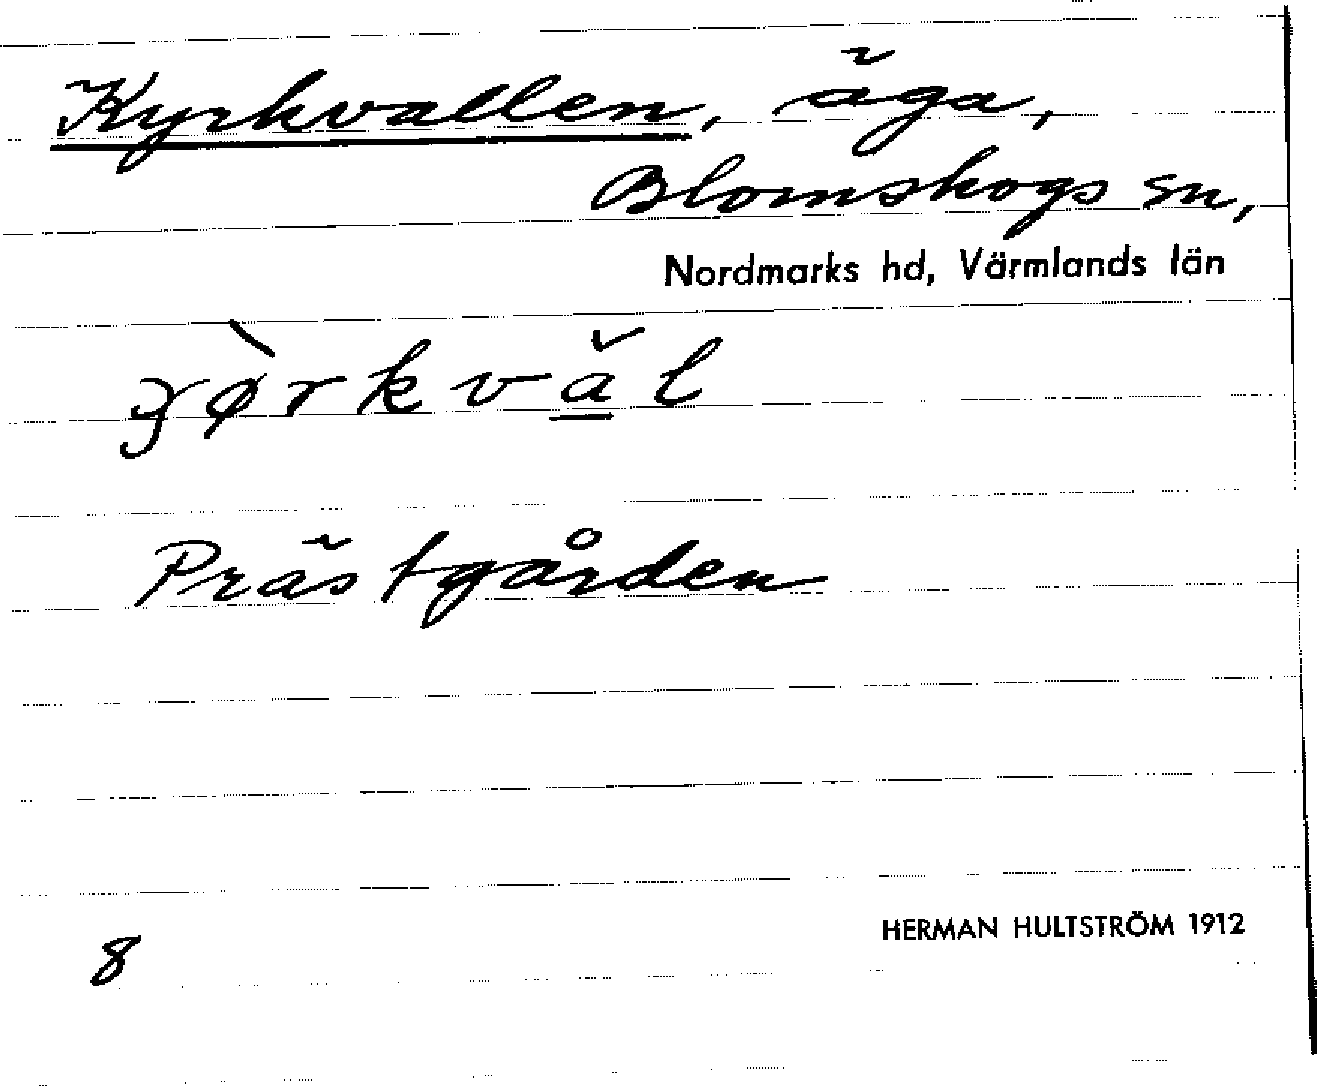 Kyrkvallen, äga,
Blomskogs sn,
Nordmarks hd, Värmlands län
Prästgården
8
HERMAN HULTSTRÖM 1912